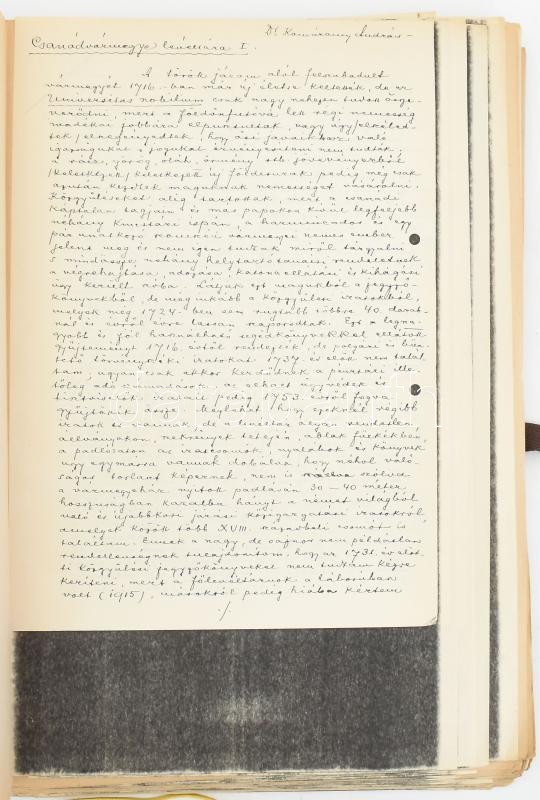 Dr. Komáromy András –
Csanádvármegye levéltára I.
A török járom alól felszabadult
vármegyét 1716-ban már új életre keltették, de az
Universitas nobilium csak nagy nehezen tudott össze-
verődni, mert a földönfutóvá lett régi nemesség
maradékai jobbára elpusztultak, vagy úgy elszéled-
tek /elszegényedtek/, hogy ősi javaikhoz való
igazságukat s jogukat érvényesíteni nem tudták;
a rácz, görög, oláh, örmény stb. jövevényekből
/keletkezett/ új földesurak pedig még csak
azután kezdtek maguknak nemességet vásárolni.
Közgyűléseket alig tartottak, mert a csanádi
káptalan tagjain és más papokon kívül legfeljebb
néhány kincstári ispán, a harminczados és egy
pár szomszéd vármegyei nemes ember
jelent meg és nem igen tudtak miről tárgyalni
s mindössze néhány helytartótanácsi rendeletnek
a végrehajtása, adózás, katonaellátás és kihágási
ügy került szóba. Látjuk ezt magukból a jegyző-
könyvekből, de még inkább a közgyűlési iratokból,
melyek még 1724-ben sem rúgtak többre 40 darab-
nál és évről évre lassan szaporodtak. Ezt a legna-
gyobb és jól használható segédkönyvekkel ellátott
gyűjteményt 1716. évtől rendezték, de polgári és bün-
tető törvényszéki iratokat 1737. év előtt nem talál-
tam; ugyancsak ekkor kezdődnek a pusztai ille-
tőleg adó összeírások. az elhalt ügyvédek és
tisztviselők iratait pedig 1753. évről fogva
gyűjtötték össze. Meglehet, hogy ezeknél régibb
iratok is vannak, de a levéltár olyan rendetlen
állványokon, szekrények tetején, ablak fülkékben,
a padlózaton az iratcsomók, nyalábok és könyvek
úgy egymásra vannak dobálva, hogy néhol való-
ságos torlaszt képeznek, nem is szólva
a vármegyeház nyitott padlásán 30–40 méter
hosszúságban karatba hányt a német világból
való és újabbkori járási közigazgatási iratokról,
amelyek között több XVIII. századbeli csomót is
találtam. Ennek a nagy, de sajnos nem példátlan
rendetlenségnek tulajdonítom, hogy az 1731. év előt-
ti közgyűlési jegyzőkönyveket nem tudtam kézre
keríteni, mert a főlevéltárnok a háborúban
volt (1915), másokról pedig hiába kértem
./.